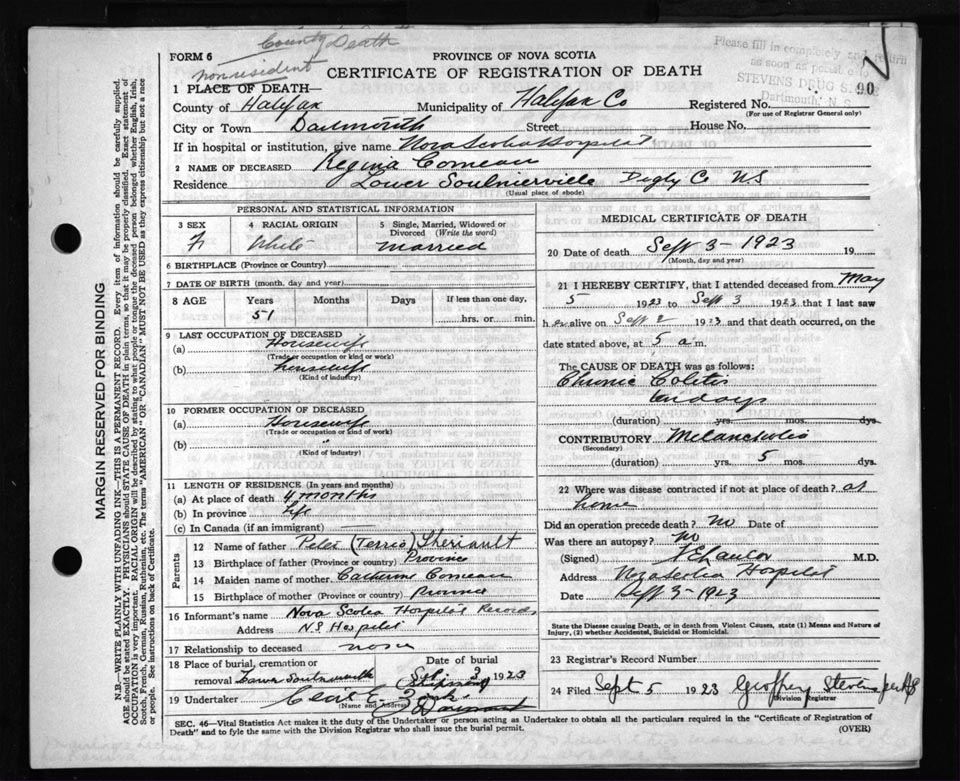 County Death
FORM 6
non resident
PROVINCE OF NOVA SCOTIA
CERTIFICATE OF REGISTRATION OF DEATH
Please fill in completely and return
as soon as possible to
STEVENS DRUG S
Dartmouth, N. S.
1 PLACE OF DEATH—
County of Halifax Municipality of Halifax Co Registered No.
(For use of Registrar General only)
City or Town Dartmouth Street House No.
If in hospital or institution, give name Nova Scotia Hospital
2 NAME OF DECEASED Regina Comeau
Residence Lower Soulnierville Digby Co N.S
(Usual place of abode)
PERSONAL AND STATISTICAL INFORMATION
3 SEX F 4 RACIAL ORIGIN White 5 Single, Married, Widowed or Divorced (Write the word) married
6 BIRTHPLACE (Province or Country)
7 DATE OF BIRTH (month, day and year)
8 AGE Years Months Days If less than one day,
51 hrs. or min.
9 LAST OCCUPATION OF DECEASED
(a) Housewife
(Trade or occupation or kind or work)
(b) housewife
(Kind of industry)
10 FORMER OCCUPATION OF DECEASED
(a) Housewife
(Trade or occupation or kind of work)
(b) "
(Kind of industry)
11 LENGTH OF RESIDENCE (In years and months)
(a) At place of death 4 months
(b) In province Life
(c) In Canada (if an immigrant) —
Parents
12 Name of father Peter (Terrio) Theriault
13 Birthplace of father (Province or country) Province
14 Maiden name of mother Catherine Comeau
15 Birthplace of mother (Province or country) Province
16 Informant's name Nova Scotia Hospital Records
Address N.S. Hospital
17 Relationship to deceased none
18 Place of burial, cremation or removal Lower Soulnierville Date of burial 3 1923
19 Undertaker
(Name and Address)
MEDICAL CERTIFICATE OF DEATH
20 Date of death Sept 3 - 1923 19
(Month, day and year)
21 I HEREBY CERTIFY, that I attended deceased from May
5 1923 to Sept 3 1923 that I last saw
her alive on Sept 2 1923 and that death occurred, on
date stated above, at 5 a m.
The CAUSE OF DEATH was as follows:
Chronic Colitis
days
(duration) yrs. mos. dys.
CONTRIBUTORY Melancholia
(Secondary)
(duration) yrs. 5 mos. dys.
22 Where was disease contracted if not at place of death? at
home
Did an operation precede death? No Date of
Was there an autopsy? No
(Signed) M.D.
Address Nova Scotia Hospital
Date Sept 3 - 1923
State the Disease causing Death, or in death from Violent Causes, state (1) Means and Nature of
Injury, (2) whether Accidental, Suicidal or Homicidal.
23 Registrar's Record Number
24 Filed Sept 5 1923 Geoffrey Stevens
Division Registrar
SEC. 46—Vital Statistics Act makes it the duty of the Undertaker or person acting as Undertaker to obtain all the particulars required in the "Certificate of Registration of
Death" and to fyle the same with the Division Registrar who shall issue the burial permit.
(OVER)
MARGIN RESERVED FOR BINDING
N.B.—WRITE PLAINLY WITH UNFADING INK—THIS IS A PERMANENT RECORD. Every item of information should be carefully supplied.
AGE should be stated EXACTLY. PHYSICIANS should STATE CAUSE OF DEATH in plain terms, so that it may be properly classified. Exact statement of
OCCUPATION is very important. RACIAL ORIGIN will be described by stating to what people or tongue the deceased person belonged whether English, Irish,
Scotch, French, German, Russian, Ruthenian, etc. The terms "AMERICAN" OR "CANADIAN" MUST NOT BE USED as they express citizenship but not a race
or people. See instructions on back of Certificate.